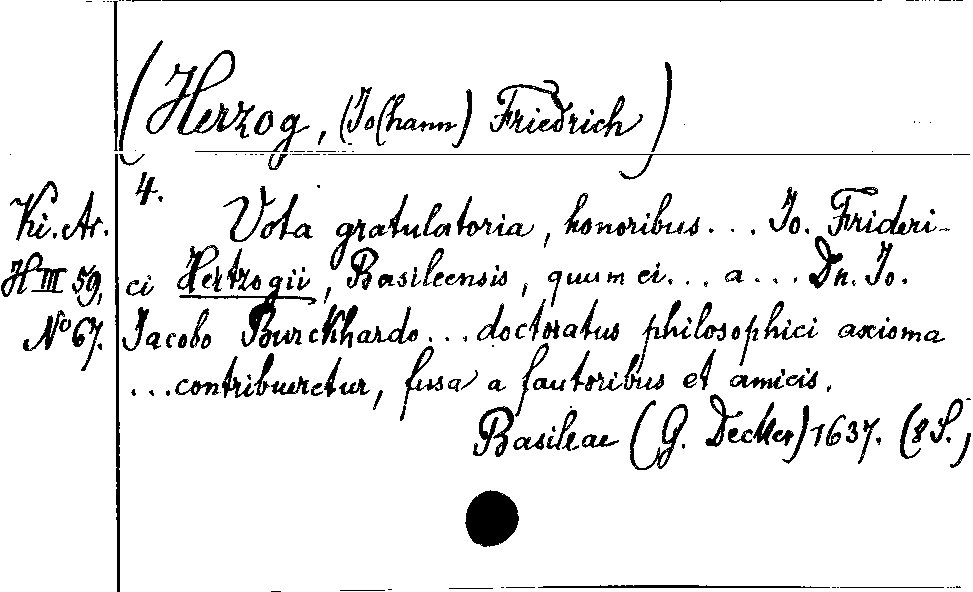 (Herzog, (Jo(hann) Friedrich)
4.
Ki. Ar.
H III 59,
No 67.
Vota gratulatoria, honoribus... Jo. Frideri-
ci Hertzogii, Basileensis, quum ei... a... Dn. Jo.
Jacobo Burckhardo... doctoratus philosophici axioma
...contribueretur, fusa a fautoribus et amicis.
Basileae (G. Decker) 1637. (8 S.)